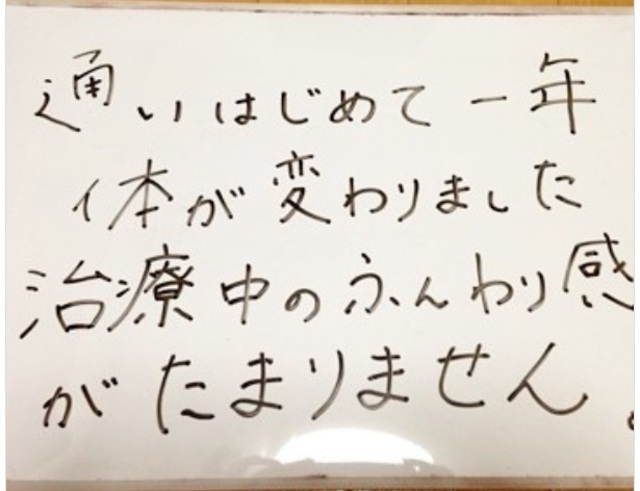 通いはじめて一年
体が変わりました
治療中のふんわり感
がたまりません。